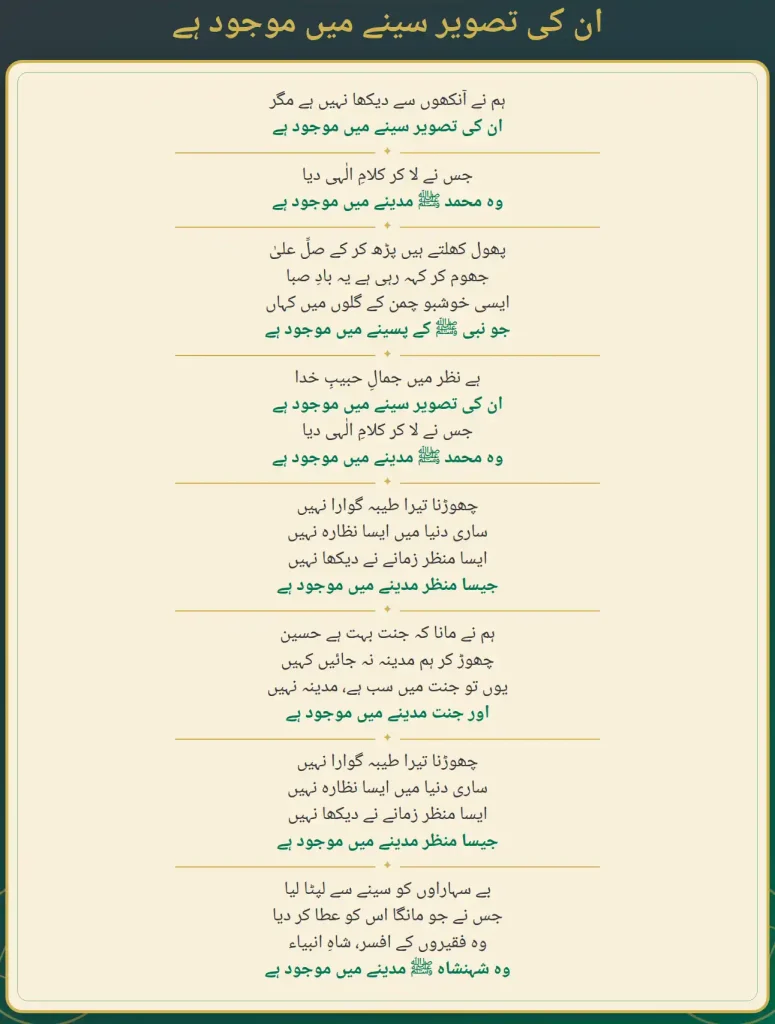 ان کی تصویر سینے میں موجود ہے
ہم نے آنکھوں سے دیکھا نہیں ہے مگر
ان کی تصویر سینے میں موجود ہے
جس نے لا کر کلامِ الٰہی دیا
وہ محمد ﷺ مدینے میں موجود ہے
پھول کھلتے ہیں پڑھ کر کے صلِّ علیٰ
جھوم کر کہہ رہی ہے یہ بادِ صبا
ایسی خوشبو چمن کے گلوں میں کہاں
جو نبی ﷺ کے پسینے میں موجود ہے
ہے نظر میں جمالِ حبیبِ خدا
ان کی تصویر سینے میں موجود ہے
جس نے لا کر کلامِ الٰہی دیا
وہ محمد ﷺ مدینے میں موجود ہے
چھوڑنا تیرا طیبہ گوارا نہیں
ساری دنیا میں ایسا نظارہ نہیں
ایسا منظر زمانے نے دیکھا نہیں
جیسا منظر مدینے میں موجود ہے
ہم نے مانا کہ جنت بہت ہے حسین
چھوڑ کر ہم مدینہ نہ جائیں کہیں
یوں تو جنت میں سب ہے، مدینہ نہیں
اور جنت مدینے میں موجود ہے
چھوڑنا تیرا طیبہ گوارا نہیں
ساری دنیا میں ایسا نظارہ نہیں
ایسا منظر زمانے نے دیکھا نہیں
جیسا منظر مدینے میں موجود ہے
بے سہاراوں کو سینے سے لپٹا لیا
جس نے جو مانگا اس کو عطا کر دیا
وہ فقیروں کے افسر، شاہِ انبیاء
وہ شہنشاہ ﷺ مدینے میں موجود ہے